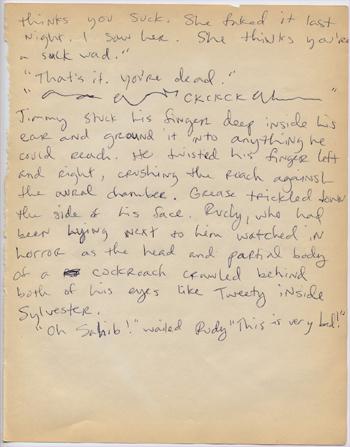 thinks you suck. She faked it last
night. I saw her. She thinks you're
a suck wad."
"That's it. You're dead."
" CKCKCK "
Jimmy stuck his finger deep inside his
ear and ground it into anything he
could reach. He twisted his finger left
and right, crushing the roach against
the aural chamber. Grease trickled down
the side of his face. Rudy, who had
been lying next to him watched in
horror as the head and partial body
of a cockroach crawled behind
both of his eyes like Tweety inside
Sylvester.
"Oh Sahib!" wailed Rudy "This is very bad!"